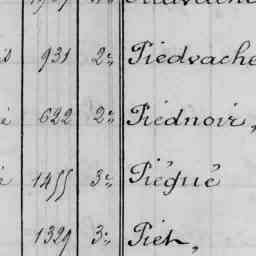 931 2° Piedvache
622 2° Piédnoir,
1455 3° Piégué
1329 3° Piet,